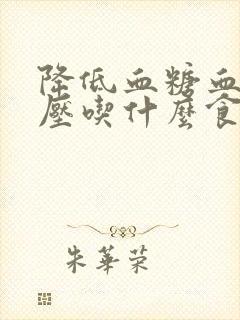 降低血糖血
壓喫什麼食
朱華荣